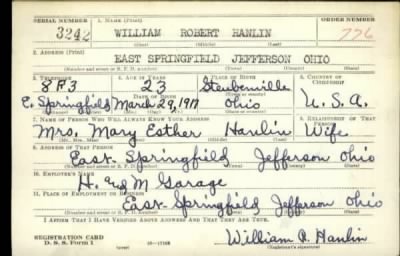 SERIAL NUMBER 1. NAME (Print) ORDER NUMBER
3242 WILLIAM ROBERT HANLIN 776
(First) (Middle) (Last)
2. ADDRESS (Print)
EAST SPRINGFIELD JEFFERSON OHIO
(Number and street or R. F. D. number) (Town) (County) (State)
3. TELEPHONE 4. AGE IN YEARS 5. PLACE OF BIRTH 6. COUNTRY OF CITIZENSHIP
8 F 3 23 Steubenville
DATE OF BIRTH
E. Springfield March 29, 1917 Ohio U.S.A.
7. NAME OF PERSON WHO WILL ALWAYS KNOW YOUR ADDRESS 8. RELATIONSHIP OF THAT PERSON
Mrs. Mary Esther Hanlin Wife
9. ADDRESS OF THAT PERSON
East Springfield Jefferson Ohio
(Number and street or R. F. D. number) (Town) (County) (State)
10. EMPLOYER'S NAME
H. and M Garage
11. PLACE OF EMPLOYMENT OR BUSINESS
East Springfield Jefferson Ohio
(Number and street or R. F. D. number) (Town) (County) (State)
I AFFIRM THAT I HAVE VERIFIED ABOVE ANSWERS AND THAT THEY ARE TRUE.
REGISTRATION CARD
D. S. S. Form 1 (over) William R. Hanlin
(Registrant's signature)